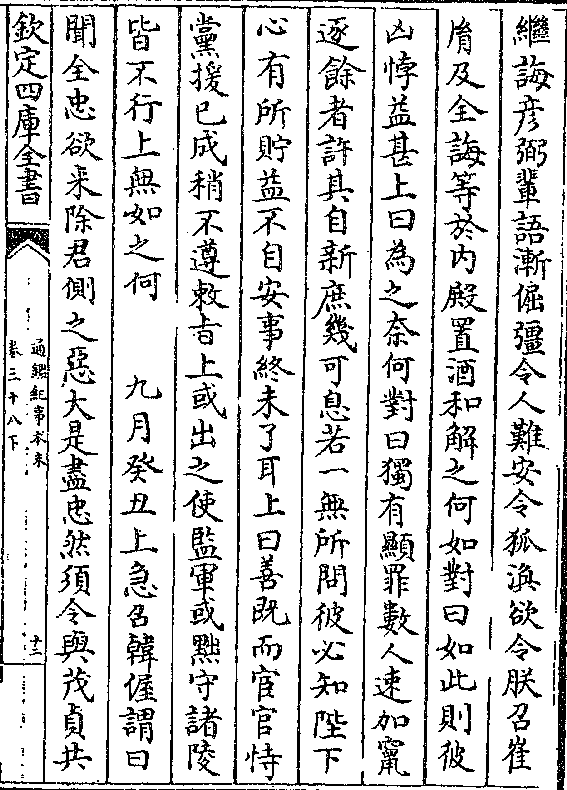 繼誨彦弼輩語漸倔彊令人難安令狐渙欲令朕召崔
𦙍及全誨等於内殿置酒和解之何如對曰如此則彼
凶悖益甚上曰為之奈何對曰獨有顯罪數人速加竄
逐餘者許其自新庶幾可息若一無所問彼必知陛下
心有所貯益不自安事終未了耳上曰善既而宦官恃
黨援已成稍不遵敕旨上或出之使監軍或黜守諸陵
皆不行上無如之何　九月癸丑上急召韓偓謂曰
聞全忠欲来除君側之惡大是盡忠然須令與茂貞共
欽定四庫全書
通鑑紀事本末
卷三十八下
十二